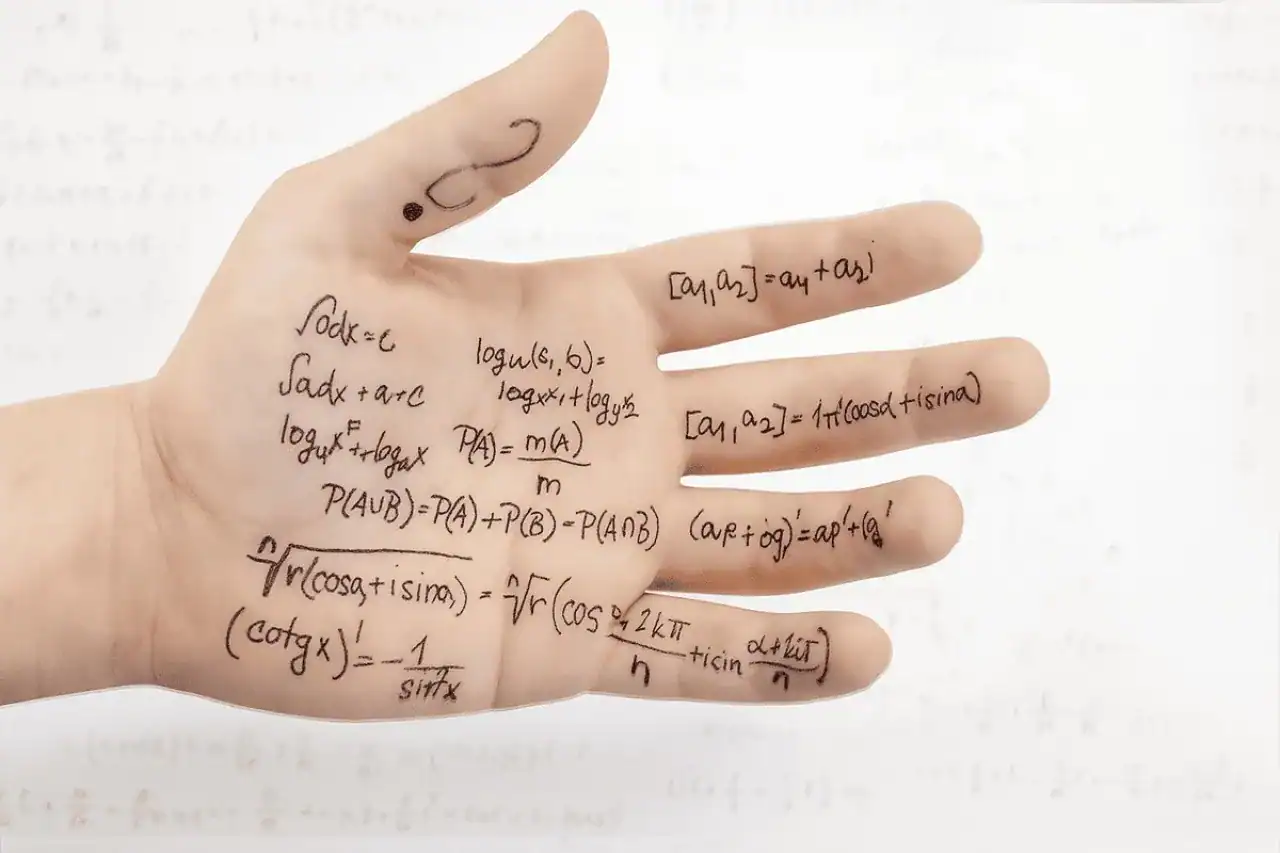 ?
[a1,a2]=a4+a2i
∫odx=c
∫adx+a+c
logu(s,,b)=
logxx1+logyx2
[a1,a2]=1πi(cosα+isinα)
log4xF++logax
P(A)=m(A)/m
P(A∪B)=P(A)+P(B)-P(A∩B)
ⁿ√r(cosa+isina)=ⁿ√r(cos 2kπ/n+isin α+kiπ/n)
(cotgx)'=-1/sin²x